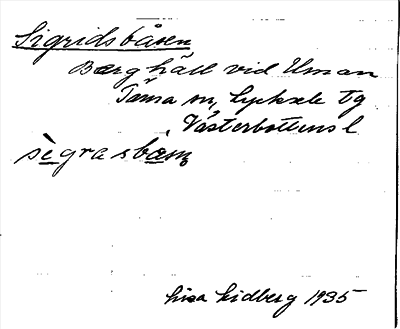 Sigridsbåsen
Berghäll vid Uman
Tärna sn, Lycksele tg
Västerbottens l
sègrasbåsn
Lisa Lidberg 1935